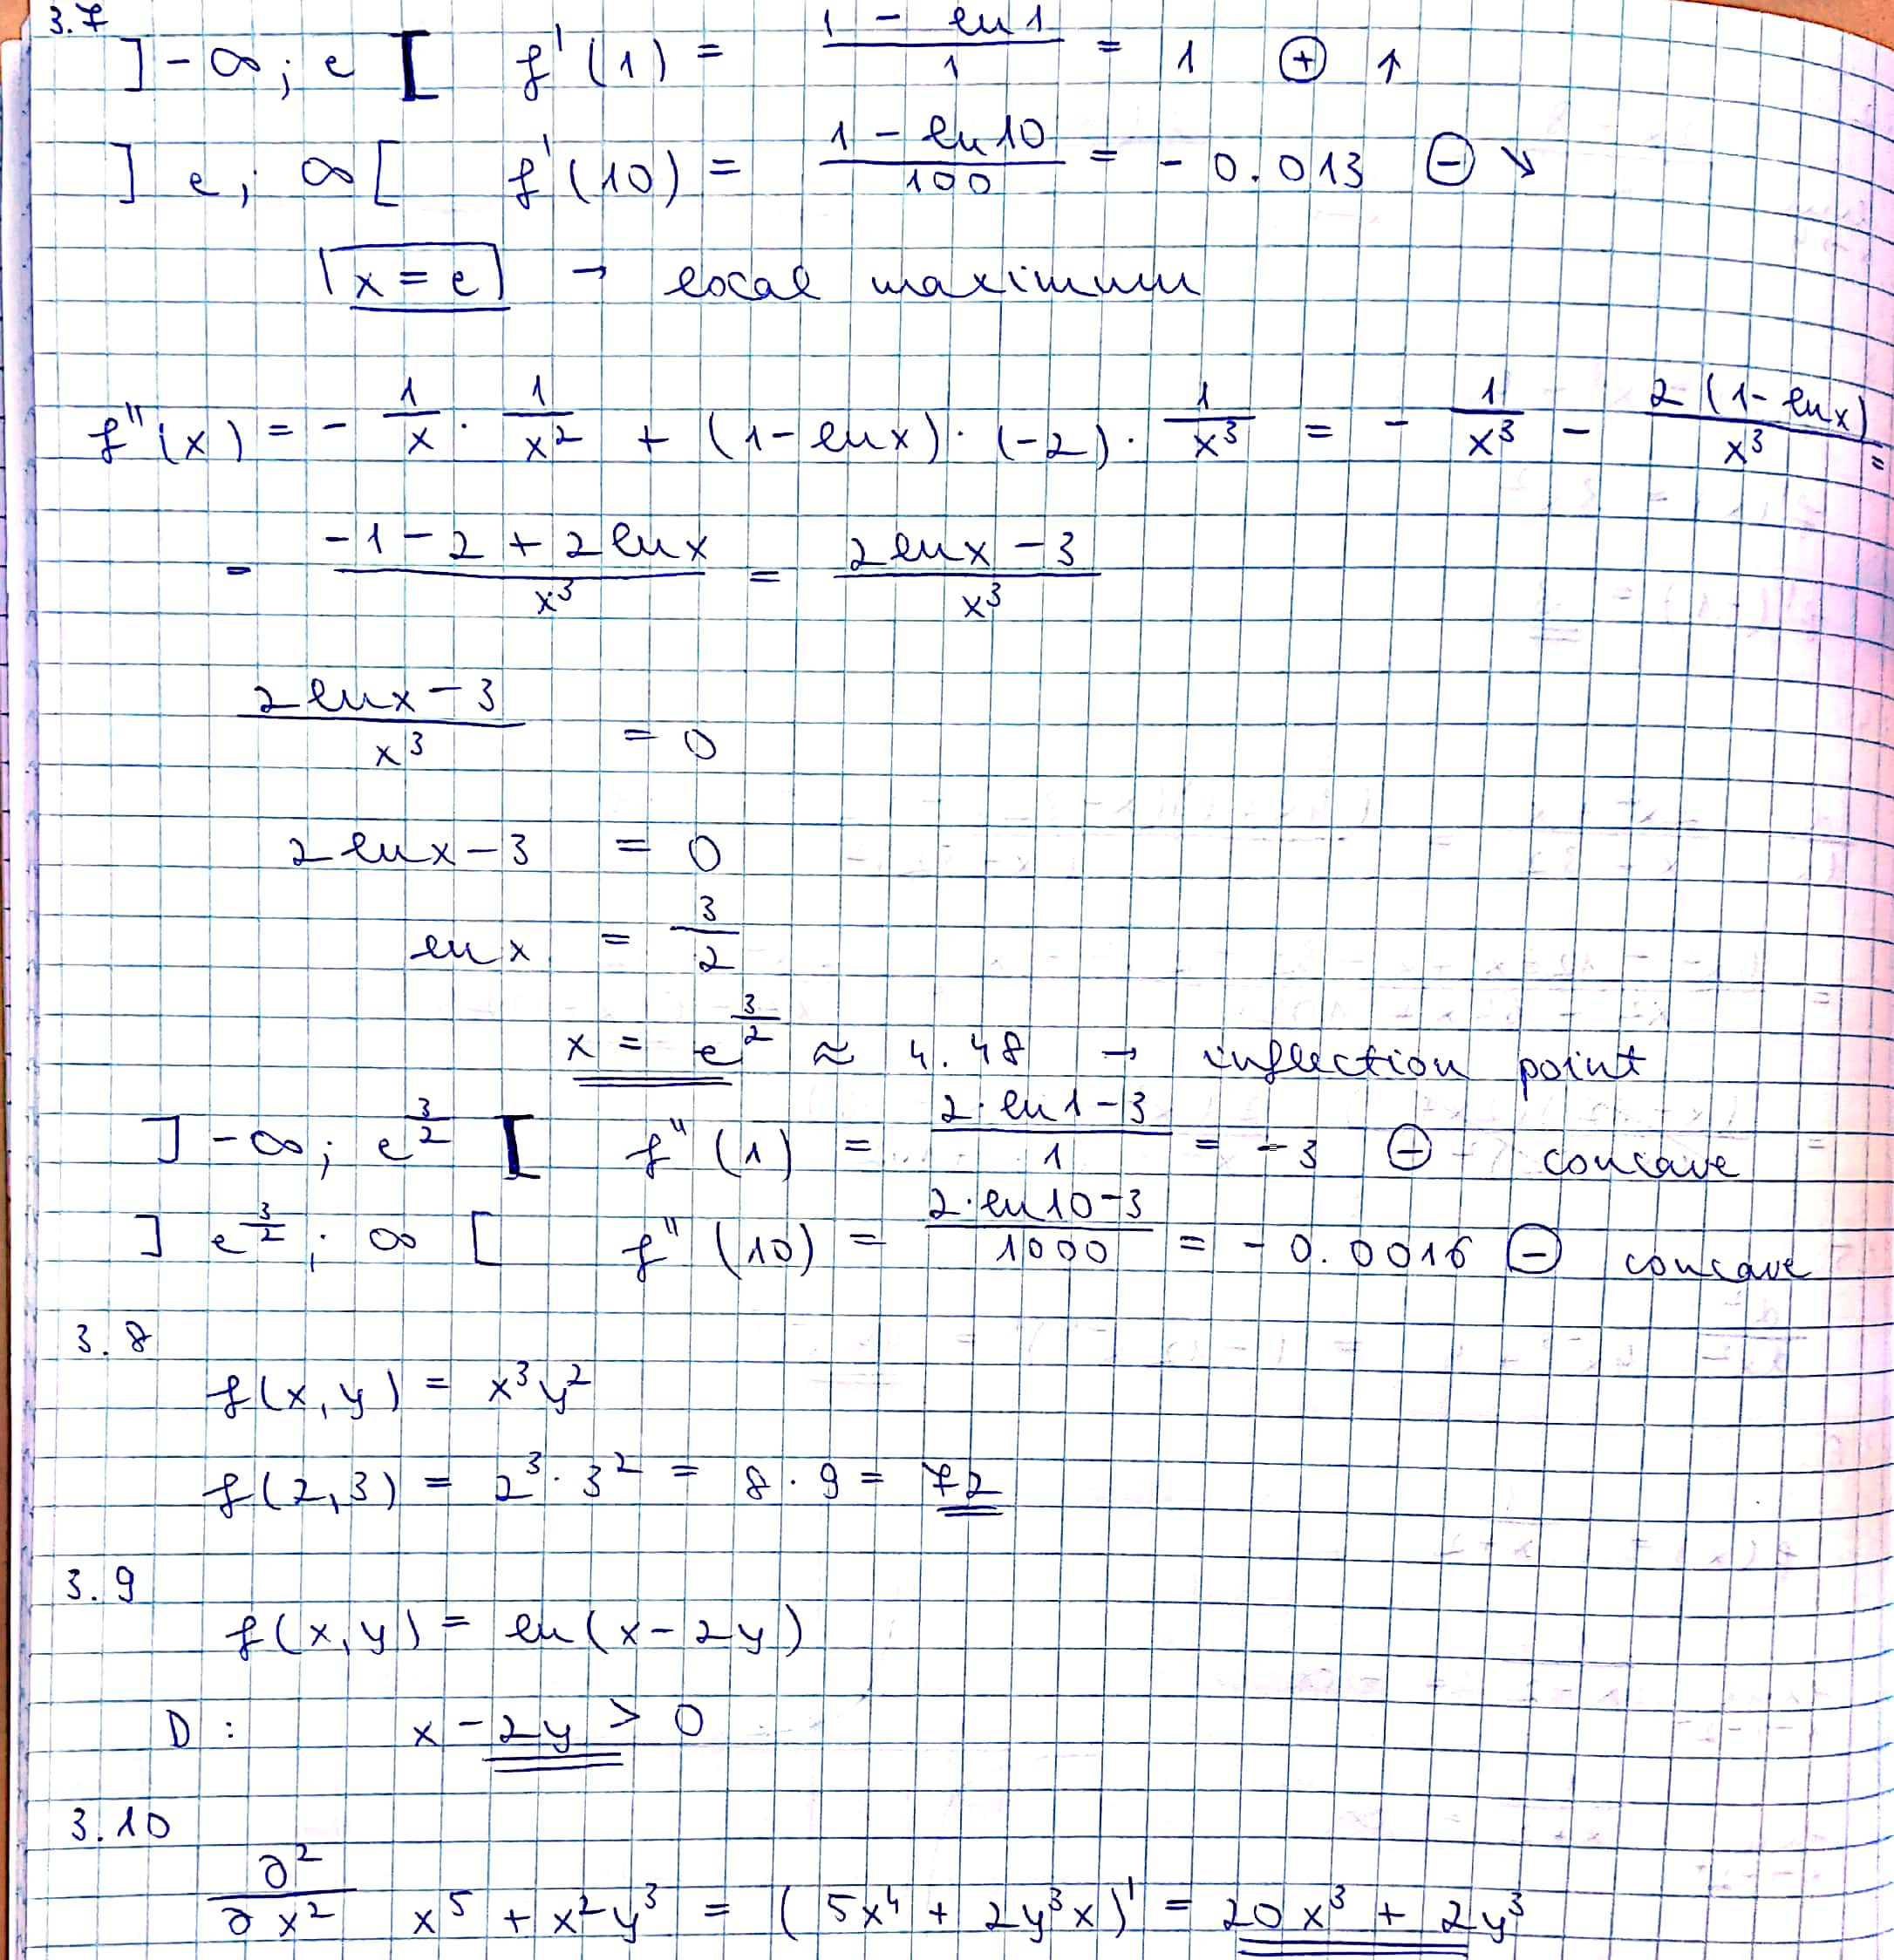 3.7
]-∞; e[ f'(1) = (1 - ln1)/1 = 1 ⊕ ↑
]e; ∞[ f'(10) = (1 - ln10)/100 = -0.013 ⊖ ↘
x = e → local maximum
f''(x) = - 1/x · 1/x² + (1-lnx)·(-2)· 1/x³ = - 1/x³ - 2(1-lnx)/x³ =
= (-1-2+2lnx)/x³ = (2lnx-3)/x³
(2lnx-3)/x³ = 0
2lnx-3 = 0
lnx = 3/2
x = e^(3/2) ≈ 4.48 → inflection point
]-∞; e^(3/2)[ f''(1) = (2·ln1-3)/1 = -3 ⊖ concave
]e^(3/2); ∞[ f''(10) = (2·ln10-3)/1000 = -0.0016 ⊖ concave
3.8
f(x,y) = x³y²
f(2,3) = 2³·3² = 8·9 = 72
3.9
f(x,y) = ln(x-2y)
D: x-2y > 0
3.10
∂²/∂x² x⁵ + x²y³ = (5x⁴ + 2y³x)' = 20x³ + 2y³